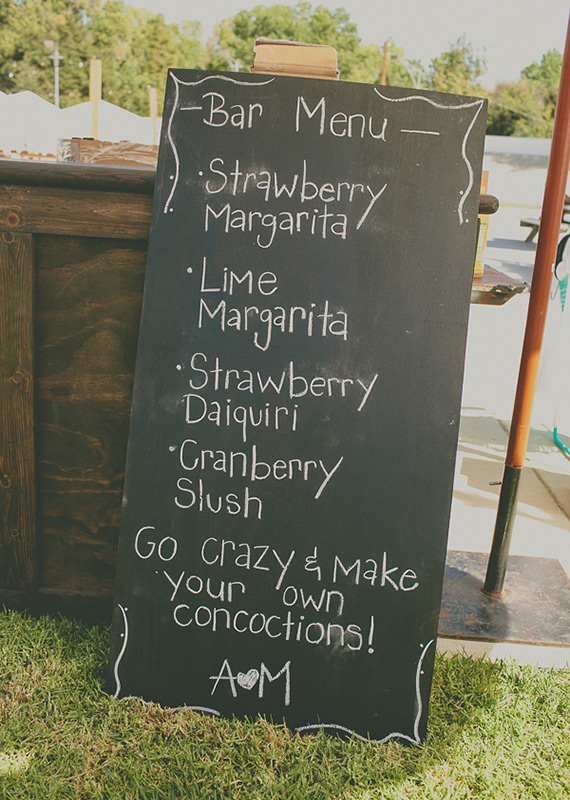 - Bar Menu -
· Strawberry
Margarita
· Lime
Margarita
· Strawberry
Daiquiri
· Cranberry
Slush
Go crazy & make
your own
concoctions!
A♥M